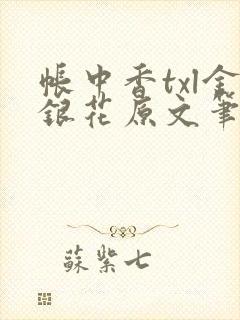 帳中香txl金
銀花原文筆
蘇紫七